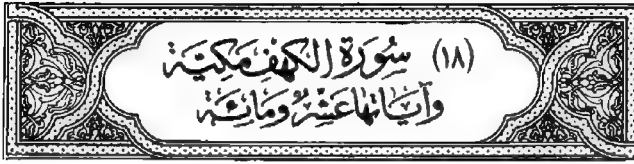 (١٨) سُورَة الكهف مَكيَّة
وَآيَاتهَا عَشرٌ وَمَائَة